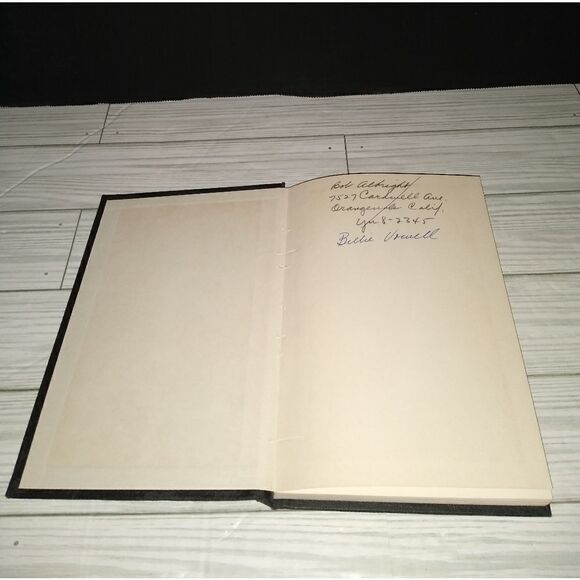 Bob Albright
7527 Cardwell Ave.
Orangevale Calif.
Yu 8-2345
Billie Vowell